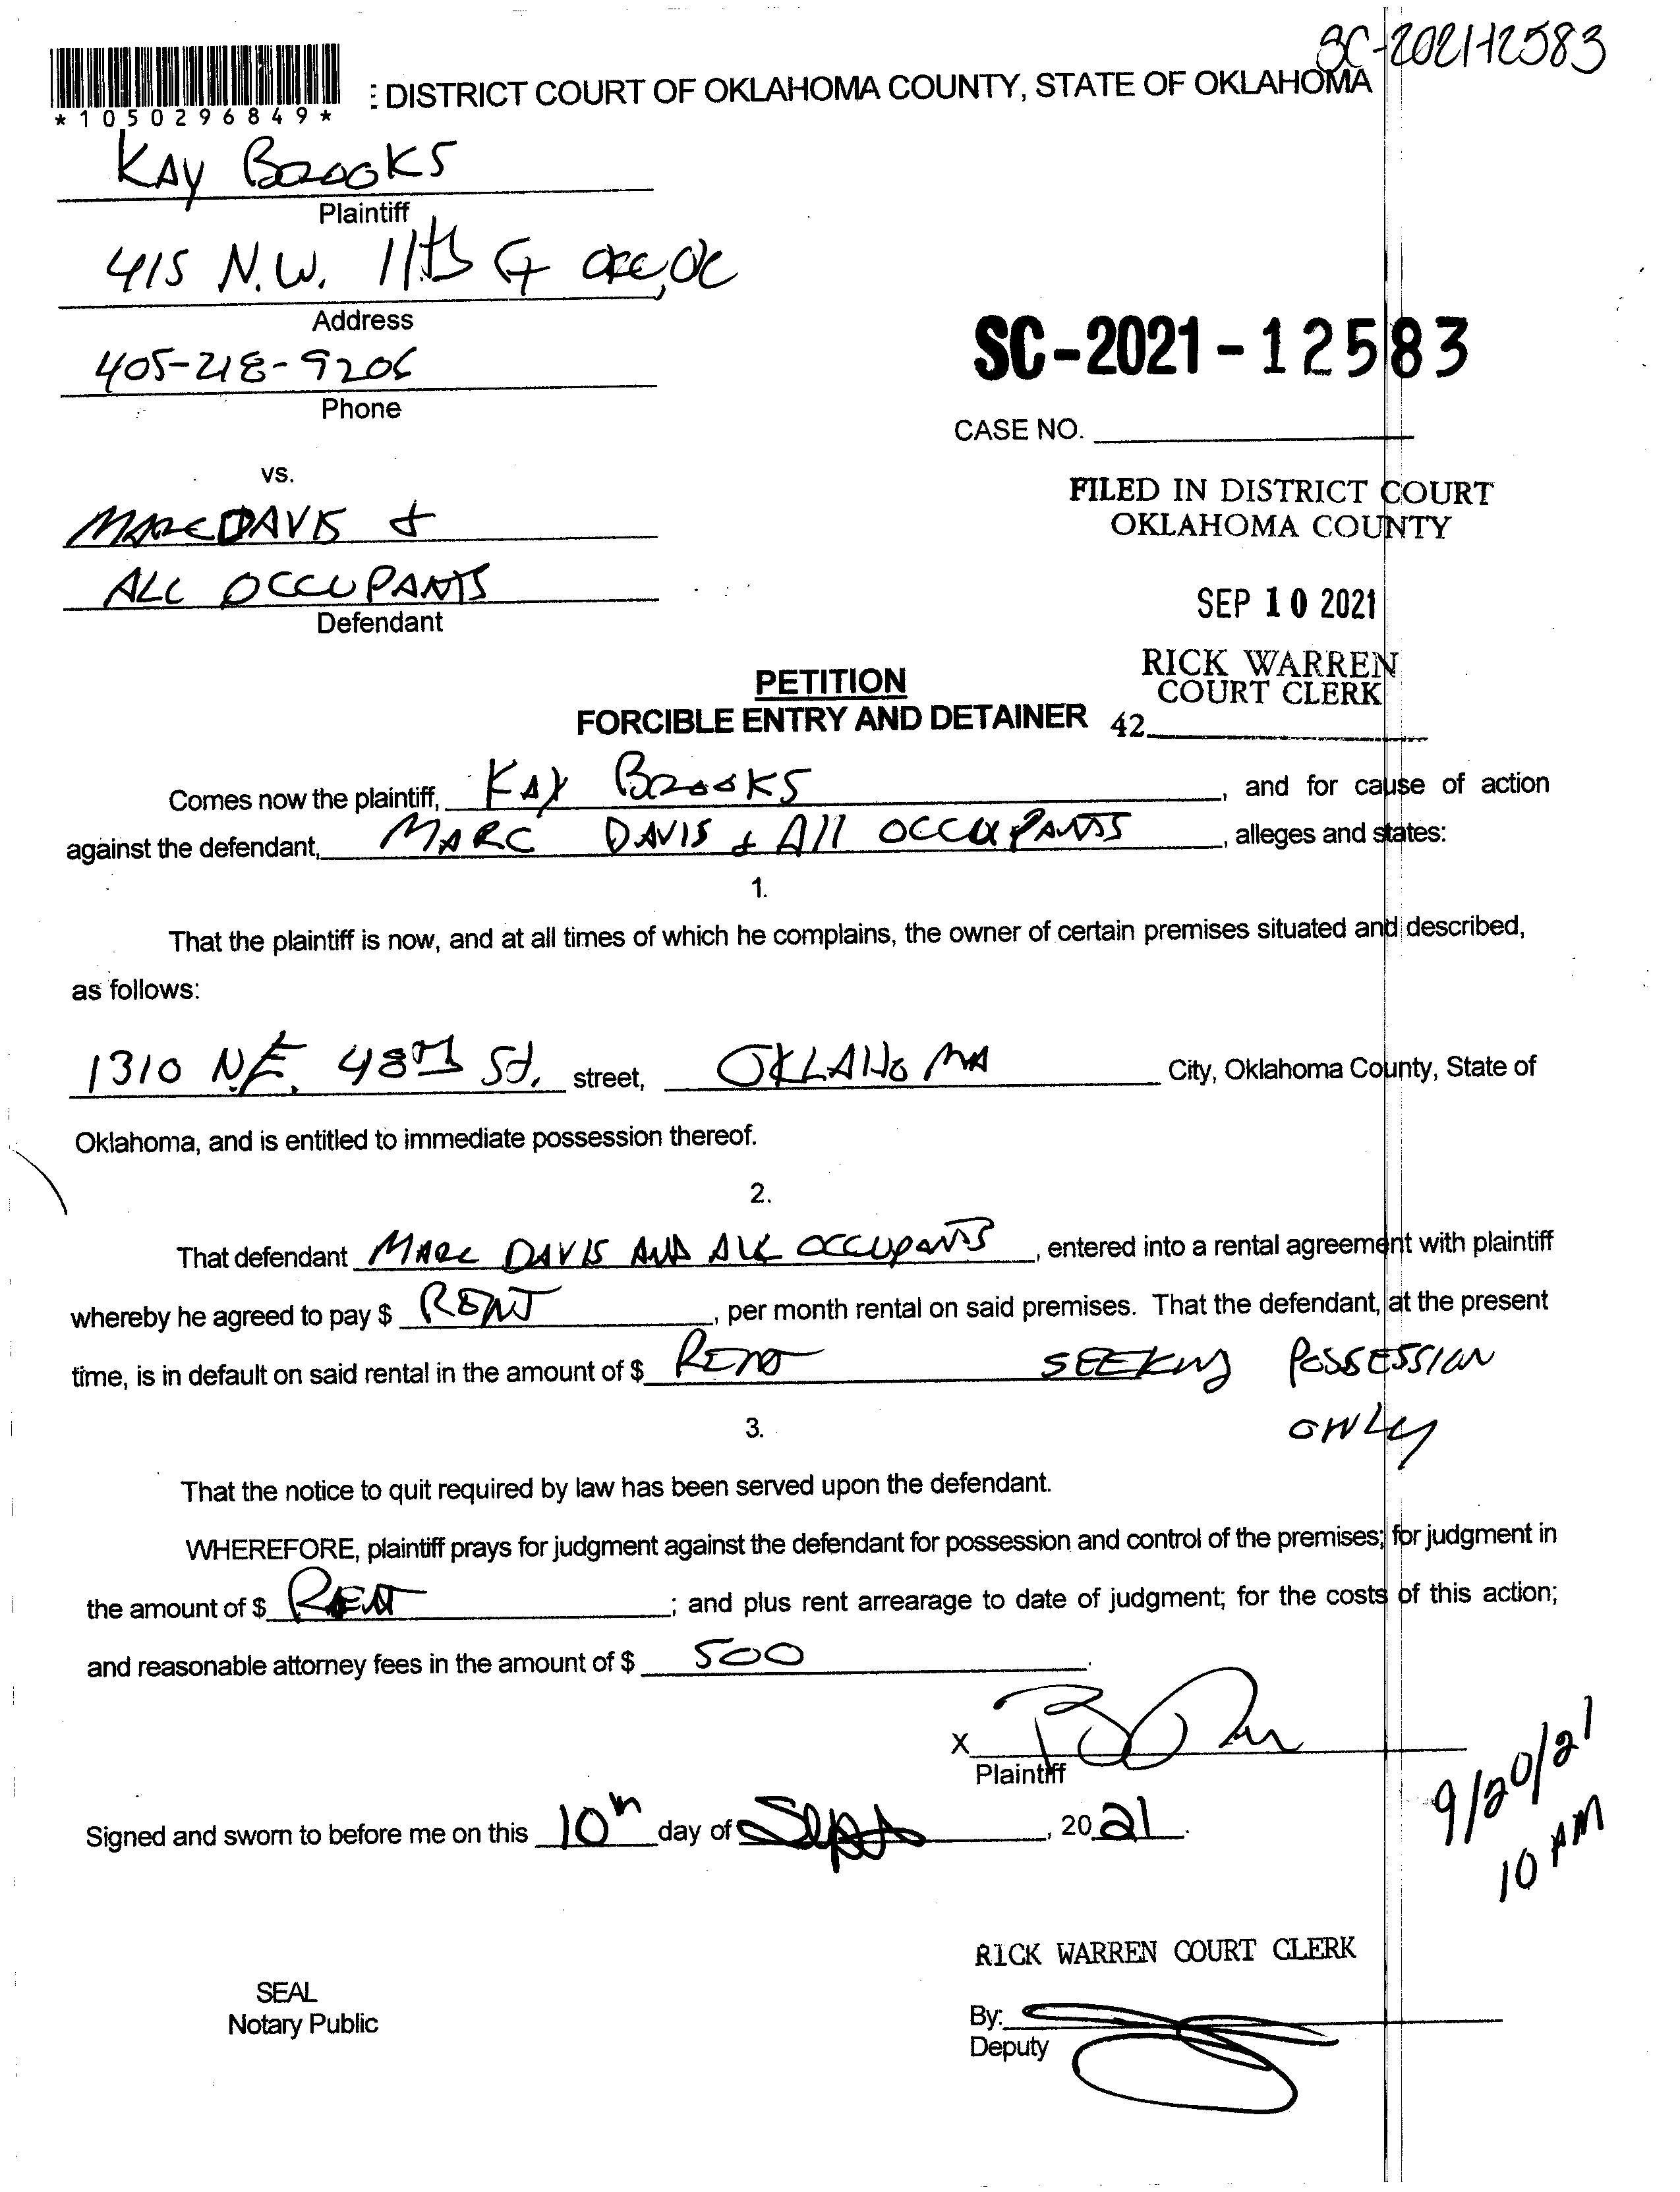 SC-2021-12583
: DISTRICT COURT OF OKLAHOMA COUNTY, STATE OF OKLAHOMA
*1050296849*
KAY BROOKS
Plaintiff
415 N.W. 11th St OKC, OK
Address
405-218-9206
Phone
SC-2021-12583
CASE NO.
vs.
FILED IN DISTRICT COURT
OKLAHOMA COUNTY
MARC DAVIS &
ALL OCCUPANTS
Defendant
SEP 10 2021
RICK WARREN
COURT CLERK
42
PETITION
FORCIBLE ENTRY AND DETAINER
Comes now the plaintiff, KAY BROOKS, and for cause of action
against the defendant, MARC DAVIS & All OCCUPANTS, alleges and states:
1.
That the plaintiff is now, and at all times of which he complains, the owner of certain premises situated and described,
as follows:
1310 N.E. 48TH St. street, OKLAHOMA City, Oklahoma County, State of
Oklahoma, and is entitled to immediate possession thereof.
2.
That defendant MARC DAVIS AND ALL OCCUPANTS, entered into a rental agreement with plaintiff
whereby he agreed to pay $ RENT, per month rental on said premises. That the defendant, at the present
time, is in default on said rental in the amount of $ RENT SEEKING POSSESSION
ONLY
3.
That the notice to quit required by law has been served upon the defendant.
WHEREFORE, plaintiff prays for judgment against the defendant for possession and control of the premises; for judgment in
the amount of $ RENT; and plus rent arrearage to date of judgment; for the costs of this action;
and reasonable attorney fees in the amount of $ 500.
X
Plaintiff
9/20/21
10 AM
Signed and sworn to before me on this 10th day of Sept, 2021.
RICK WARREN COURT CLERK
SEAL
Notary Public
By:
Deputy